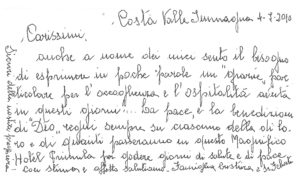 Costa Valle Imagna 4-7-2010
Carissimi,
anche a nome dei miei sento il bisogno
di esprimere in poche parole un "grazie" par
ticolare per l'accoglienza, e l'ospitalità avuta
in questi giorni... La pace, e la benedizione
di "Dio", regni sempre su ciascuno della di lo
ro e di quanti passeranno in questo Magnifico
Hotel Primula per godere giorni di salute e di pace
con stima e affetto salutiamo. Famiglia
Sicuri della vostra preghiera